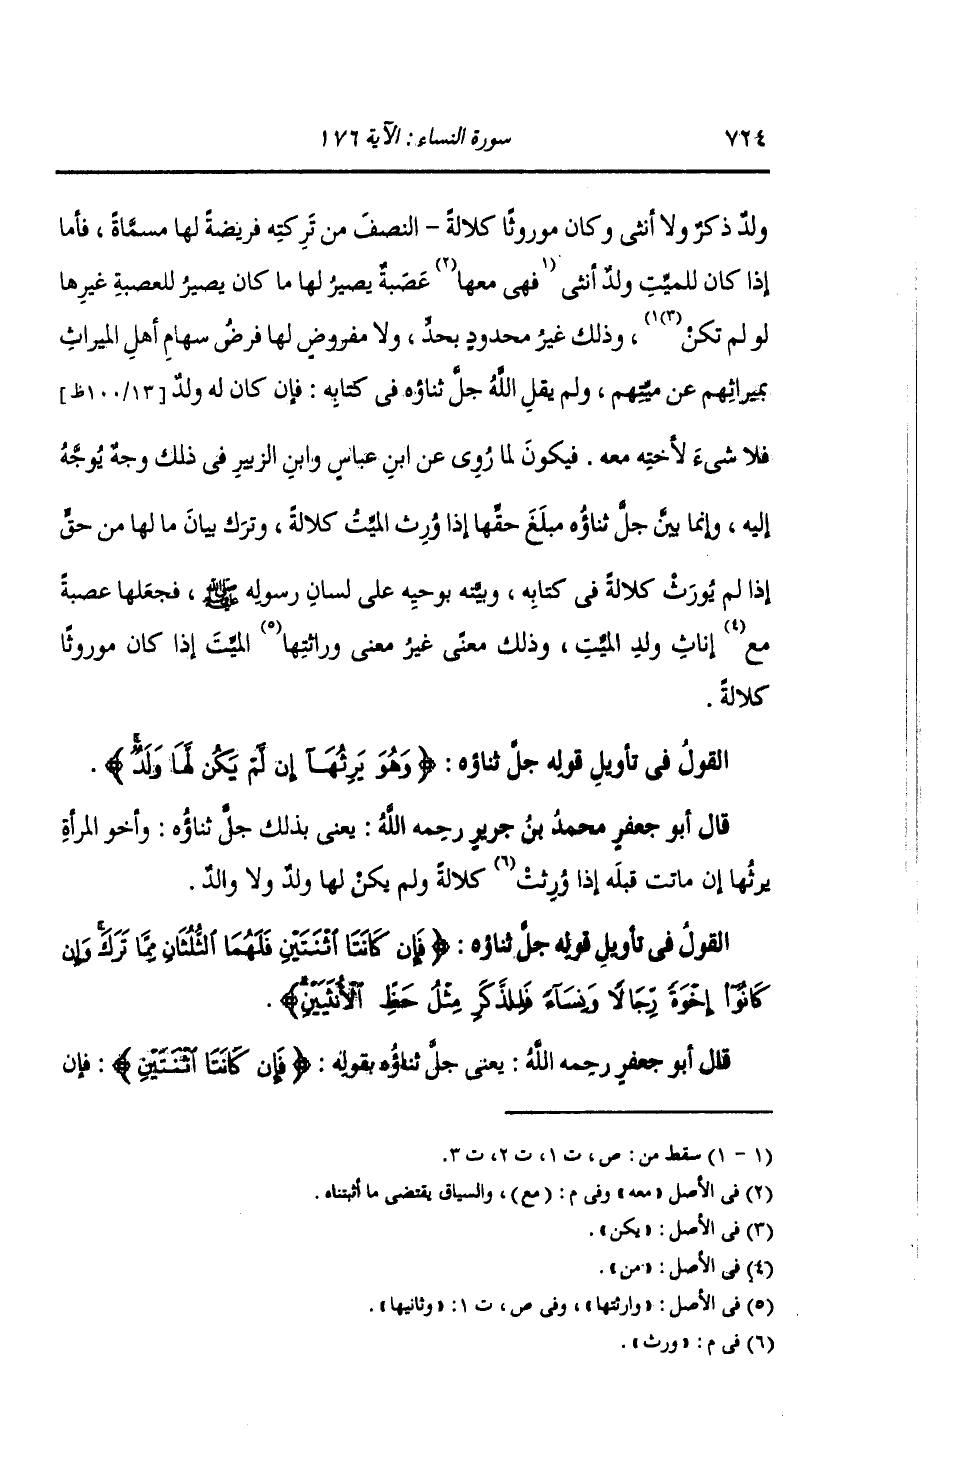 ٧٢٤ سورة النساء : الآية ١٧٦
ولدٌ ذكرٌ ولا أنثى وكان موروثًا كلالةً – النصفَ من تَرِكتِه فريضةً لها مسمَّاةً ، فأما
إذا كان للميِّتِ ولدٌ أنثى (١ فهى معها(٢) عَصَبةٌ يصيرُ لها ما كان يصيرُ للعصبةِ غيرِها
لو لم تكنْ(٣)١) ، وذلك غيرُ محدودٍ بحدٍّ ، ولا مفروضٍ لها فرضُ سهامِ أهلِ الميراثِ
بميراثِهم عن ميِّتِهم ، ولم يقلِ اللَّهُ جلَّ ثناؤه فى كتابِه : فإن كان له ولدٌ [١٣/ ١٠٠ظ]
فلا شىءَ لأختِه معه . فيكونَ لما رُوِى عن ابنِ عباسٍ وابنِ الزبيرِ فى ذلك وجهٌ يُوجَّهُ
إليه ، وإنما بينَّ جلَّ ثناؤُه مبلَغَ حقِّها إذا وُرِث الميِّتُ كلالةً ، وترَك بيانَ ما لها من حقٍّ
إذا لم يُورَثْ كلالةً فى كتابِه ، وبيَّنه بوحيِه على لسانِ رسولِه ﷺ ، فجعَلها عصبةً
مع(٤) إناثِ ولدِ الميِّتِ ، وذلك معنًى غيرُ معنى وراثتِها(٥) الميِّتَ إذا كان موروثًا
كلالةً .
القولُ فى تأويلِ قولِه جلَّ ثناؤه : ﴿ وَهُوَ يَرِثُهَآ إِن لَّمْ يَكُن لَّهَا وَلَدٌ ۚ ﴾ .
قال أبو جعفرٍ محمدُ بنُ جريرٍ رحِمه اللَّهُ : يعنى بذلك جلَّ ثناؤُه : وأخو المرأةِ
يرثُها إن ماتت قبلَه إذا وُرِثتْ(٦) كلالةً ولم يكنْ لها ولدٌ ولا والدٌ .
القولُ فى تأويلِ قولِه جلَّ ثناؤه : ﴿ فَإِن كَانَتَا ٱثْنَتَيْنِ فَلَهُمَا ٱلثُّلُثَانِ مِمَّا تَرَكَ ۚ وَإِن
كَانُوٓا۟ إِخْوَةً رِّجَالًا وَنِسَآءً فَلِلذَّكَرِ مِثْلُ حَظِّ ٱلْأُنثَيَيْنِ ۗ ﴾ .
قال أبو جعفرٍ رحِمه اللَّهُ : يعنى جلَّ ثناؤُه بقولِه : ﴿ فَإِن كَانَتَا ٱثْنَتَيْنِ ﴾ : فإن
(١ – ١) سقط من : ص ، ت ١، ت ٢، ت ٣.
(٢) فى الأصل « معه » وفى م : ( مع ) ، والسياق يقتضى ما أثبتناه .
(٣) فى الأصل : « يكن » .
(٤) فى الأصل : « من » .
(٥) فى الأصل : « وارثتها » ، وفى ص ، ت ١: « وثانيها » .
(٦) فى م : « ورث » .